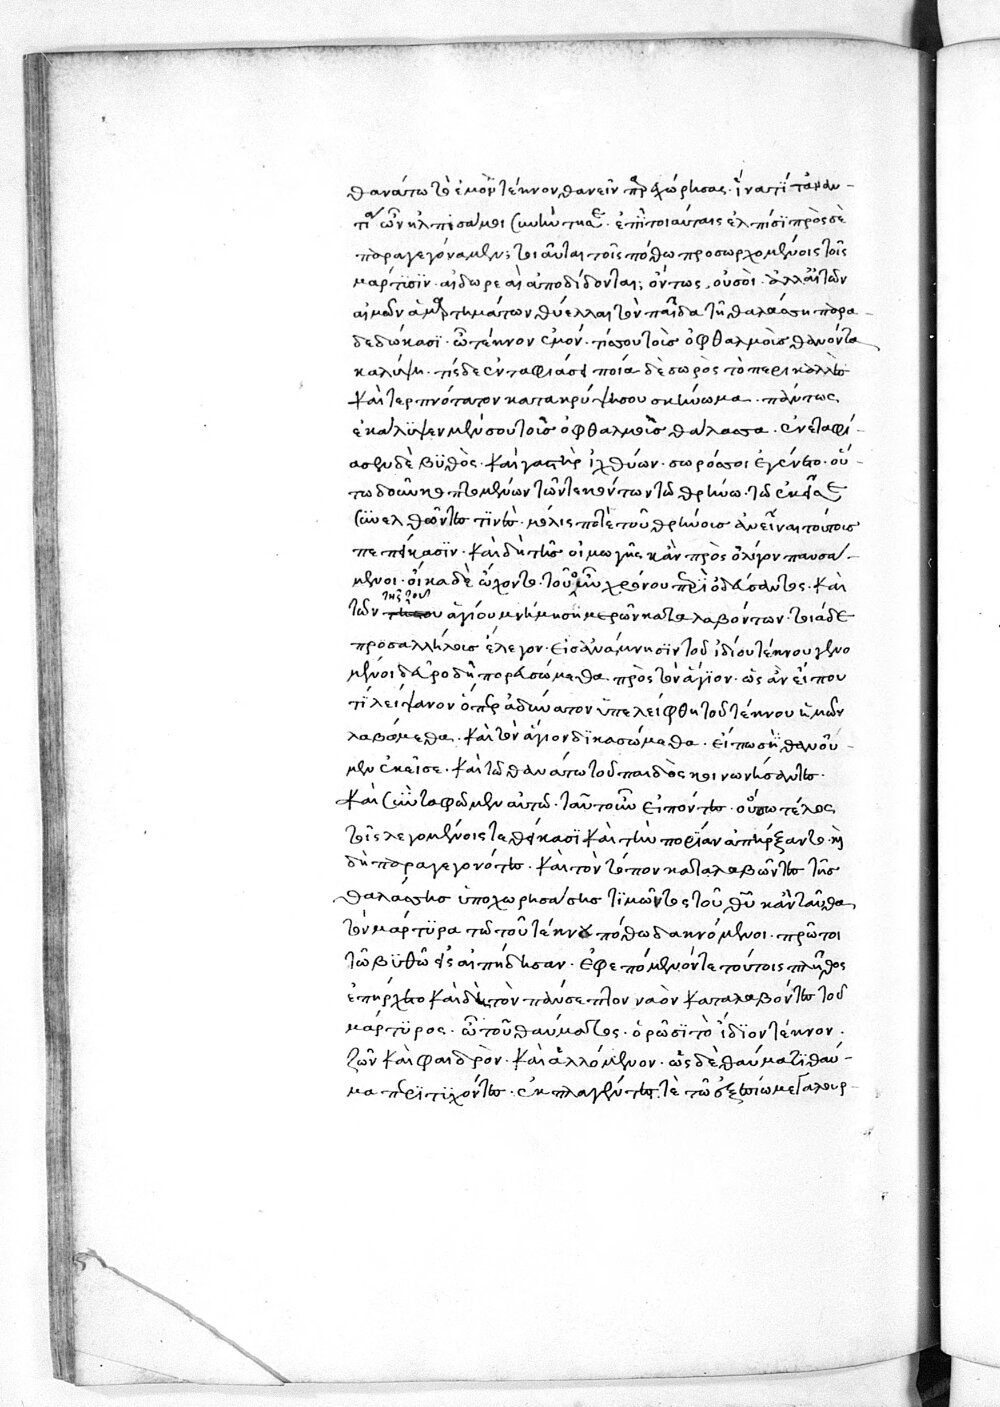 θανάτω τὸ ἐμὸν τέκνον θανεῖν παρεχώρησας· ἵνατί τἀναν-
τία ὧν ἠλπίσαμεν συνήντησε· ἐπὶ τοιαύταις ἐλπίσι πρὸς σὲ
παραγεγόναμεν; τοιαῦται τοῖς πόθω προσερχομένοις τοῖς
μάρτυσϊν· αἱ δωρεαὶ ἀποδίδονται; ὄντως, οὐ σοὶ· ἀλλ' αἱ τῶν
αἱμῶν ἁμαρτημάτων θύελλαι τὸν παῖδα τῆ θαλάσση παρα-
δεδώκασϊ· ὦ τέκνον ἐμόν· τίς σου τοὺς ὀφθαλμοὺς θανόντα
καλύψη· τίς δὲ ἐνταφιάσει ποία δὲ σωρὸς τὸ περικαλλὲς
καὶ τερπνότατον κατακρύψη σου σκήνωμα· πάντως
ἐκάλυψεν μέν σου τοὺς ὀφθαλμοὺς θάλασσα· ἐνεταφί-
ασεν δὲ βϋθὸς· καὶ γαστὴρ ἰχθύων· σωρός σοι ἐγένετο· οὕ-
τω δ' οὖν κοπτομένων τῶν τεκόντων τῶ θρήνω· τῶ ἐκεῖσε
συνελθόντες τινὲς· μόλις ποτὲ τοῦ θρήνοις ἀνεῖναι τούτοις
πεπείκασϊν· καὶ δὴ τῆς οἰμωγῆς κἂν πρὸς ὀλίγον παυσά-
μενοι· οἴκαδε ὤχοντο· τοῦ οὖν χρόνου περϊοδεύσαντος· καὶ
τῶν τῆς τοῦ ἁγίου μνήμης ἡμερῶν καταλαβόντων· τοιάδε
πρὸς ἀλλήλοις ἔλεγον· εἰς ἀνάμνησϊν τοῦ ἰδίου τέκνου γενο
μένοι δεῦρο δὴ πορευσώμεθα πρὸς τὸν ἅγϊον· ὡς ἂν εἴ που
τί λείψανον ὅπερ ἀδύνατον ὑπελείφθη τοῦ τέκνου ἡμῶν
λαβώμεθα· καὶ τὸν ἅγιον δικασώμεθα· εἴπως ἢ θανού-
μεν ἐκεῖσε· καὶ τῶ θανάτω τοῦ παιδὸς κοινωνήσαντες·
καὶ συνταφῶμεν αὐτῶ· ταῦτ' οὖν εἰπόντες· οὕτω τέλος
τοῖς λεγομένοις τεθείκασϊ καὶ τὴν πορείαν ἀπήρξαντο· ἤ
δη παραγεγονότες· καὶ τὸν τόπον καταλαβόντες τῆς
θαλάσσης ὑποχωρησάσης τϊμῶντος τοῦ θεοῦ κἀνταῦθα
τὸν μάρτϋρα τῶ τοῦ τέκνου πόθω δακνόμενοι· πρῶτοι
τῶ βϋθῶ εἰσἀπήδησαν· ἐφεπομένόν τε τούτοις πλῆθος
ἐπήρχετο καὶ δὴ τὸν πάνσεπτον ναὸν καταλαβόντες τοῦ
μάρτϋρος· ὦ τοῦ θαύματος· ὁρῶσϊ τὸ ἴδϊον τέκνον·
ζῶν καὶ φαιδρὸν· καὶ ἁλλόμενον· ὡς δὲ θαύματϊ θαύ-
μα περϊτϊχόντες· ἐκπλαγέντες τὲ τῶ ἐξαισίω μεγαλουρ-